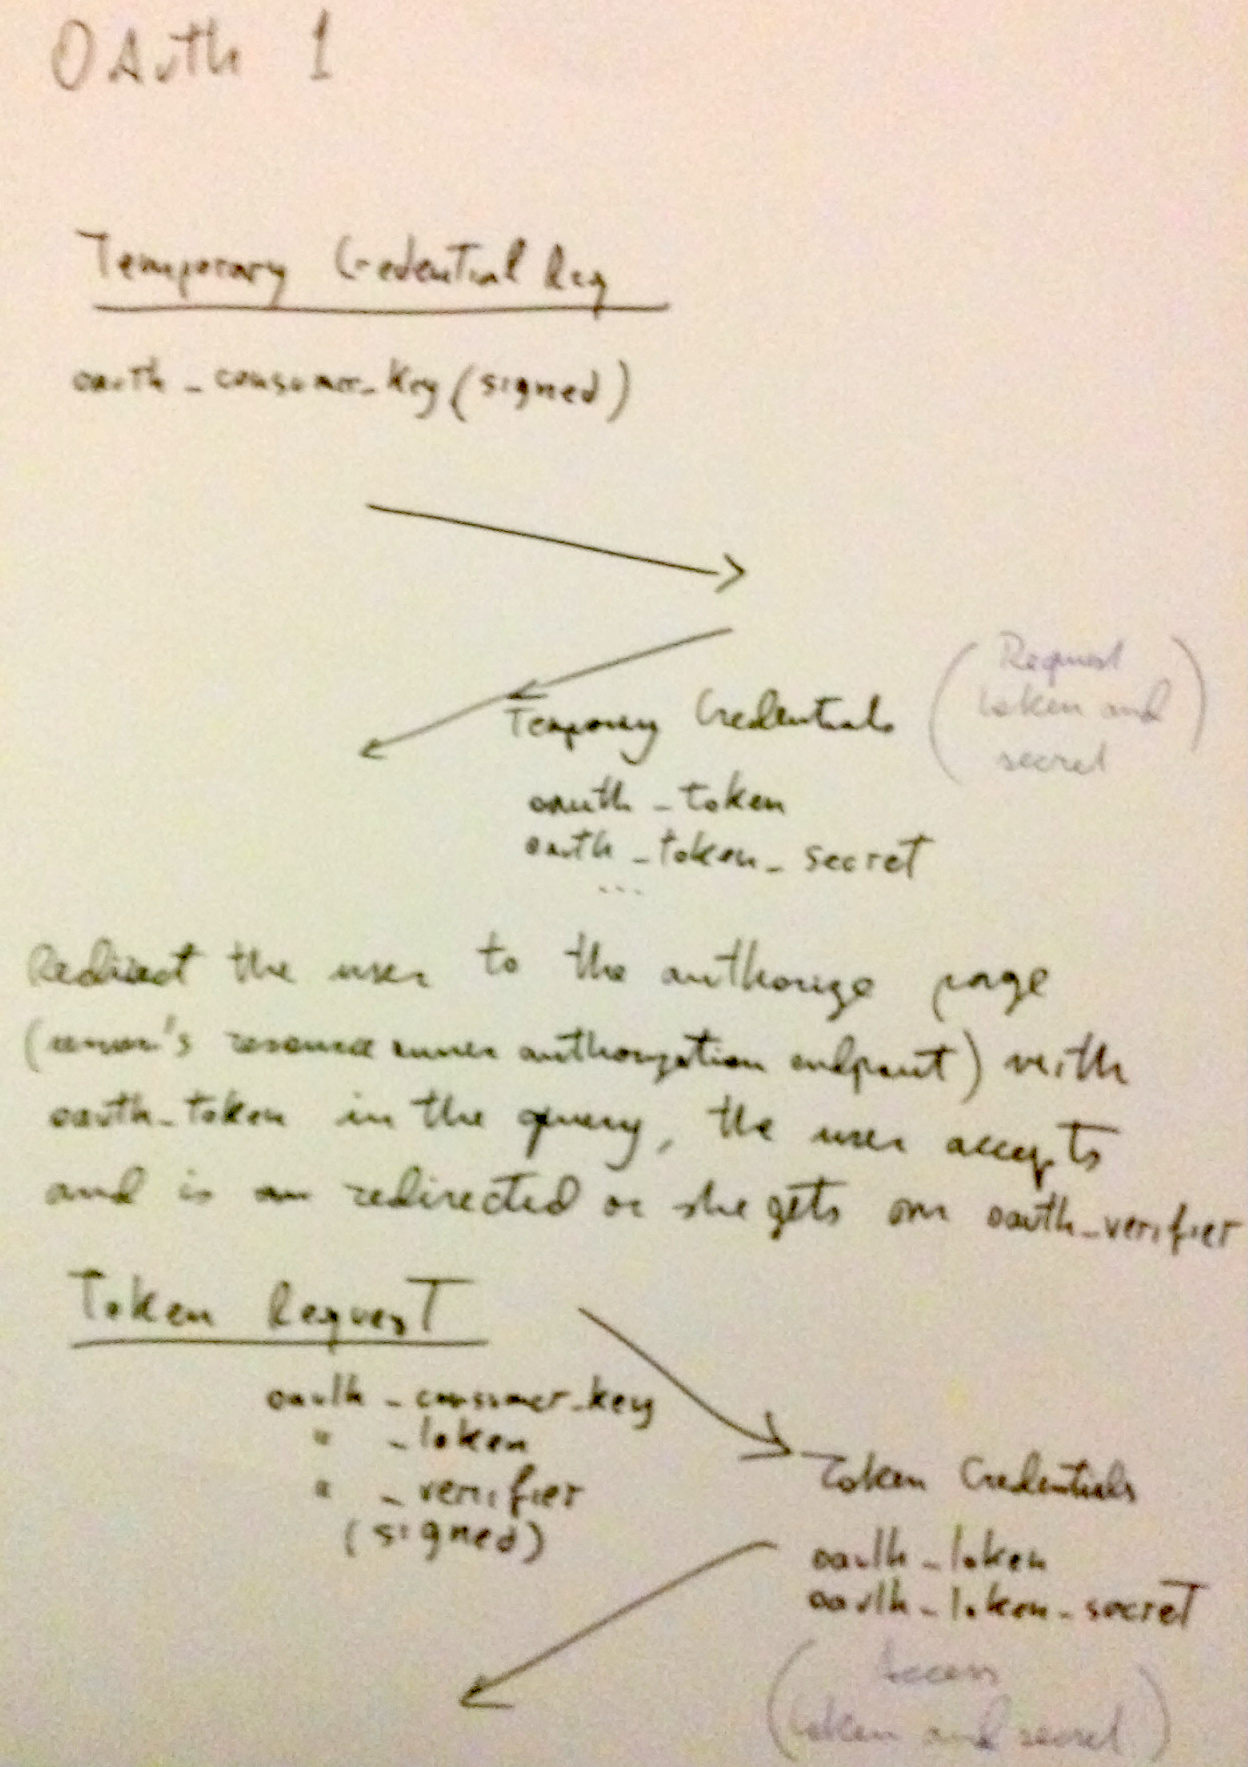 OAuth 1
Temporary Credential Req
oauth_consumer_key (signed)
(Request
token and
secret)
Temporary Credentials
oauth_token
oauth_token_secret
...
Redirect the user to the authorize page
resource owner authorization endpoint) with
oauth_token in the query, the user accepts
and is redirected or she gets an oauth_verifier
Token Request
oauth_consumer_key
" _token
" _verifier
(signed)
Token Credentials
oauth_token
oauth_token_secret
(Access
token and secret)